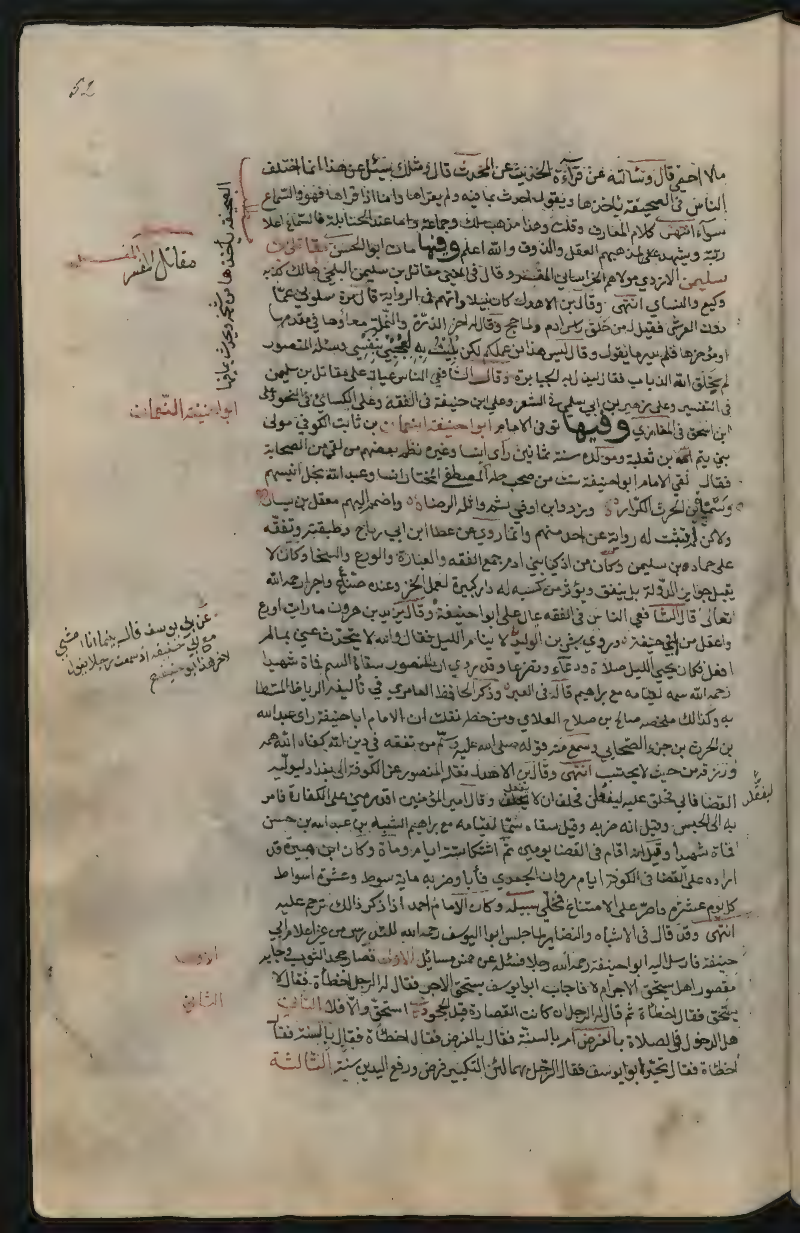 52
مالا احصي قال وسالته عن قرآءة الحديث عن المحدث قال ومثلك يسئل عن هذا انما اختلف
الناس في الصحيفة ياخذها ويقول احدث بما فيه ولم يقراها واما اذا قراها فهو والسماع
سوآء انتهى كلام المعارف وقلت وهذا مذهب ملك وجماعة واما عند الحنابلة فالسماع اعلا
رتبة ويشهد على مذهبهم العقل والذوق والله اعلم وفيها مات ابو الحسن مقاتل بن
سليمن الازدي مولاهم الخراساني المفسر وقال في المغني مقاتل بن سليمن البلخي هالك كذبه
وكيع والنساي انتهى وقال بن الاهدل كان نبيلا واتهم في الرواية قال مرة سلوني عما
دون العرش فقيل له من حلق راس ادم ولما حج وقال له اخر الذرة والنملة معاوها في مقدمها
او موخرها فلم يدر ما يقول وقال ليس هذا من عملكم لكن بليت به لعجبي بنفسي وسئله المنصور
لم يخلق الله الذباب فقال ليذل به الجبابرة وقال الشافعي الناس عيال على مقاتل بن سليمن
في التفسير وعلى زهير بن ابي سلمى في الشعر وعلى ابن حنيفة في الفقه وعلى الكسائي في النحو وعلى
ابن اسحق في المغازي وفيها توفي الامام ابو احنيفة النعمان بن ثابت الكوفي مولى
بني تيم الله بن ثعلبة ومولده سنة ثمانين رأى انسا وغيره نظم بعضهم من لقي من الصحابة
فقال لقي الامام ابو احنيفة ست من صحب طه المصطفى المختار انسا وعبد الله نجل انيسهم
وسميه بن الحرث الكرار وزد وابن اوفى بن واثلة الرضا واضمم اليهم معقل بن يسار
ولكن لم يثبت له رواية عن احد منهم وانما روى عن عطا ابن ابي رباح وطبقته وتفقه
على حماد بن سليمن وكان من اذكيا بني ادم جمع الفقه والعبادة والورع والسخا وكان لا
يقبل جوايز الدولة بل ينفق ويؤثر من كسبه له دار كبيرة لعمل الخز وعنده صناع واجرا رحمه الله
تعالى قال الشافعي الناس في الفقه عيال على ابو احنيفة وقال يزيد بن هرون ما رايت اورع
واعقل من ابي حنيفة وروي بشر بن الوليد لا ينام الليل فقال والله لا يتحدث عني بما لم
افعل فكان يحيي الليل صلاة ودعاء وتضرعا وقد روي ان المنصور سقاه السم فمات شهيدا
رحمه الله سمه لقيامه مع براهيم قاله في العبر وذكر الحافظ العامري في تاليفه الرياض المستطا
به وكذالك ملخصه صالح بن صلاح العلاي ومن خطه نقلت ان الامام ابا حنيفة راى عبد الله
بن الحرث بن جزء الصحابي وسمع منه قوله صلى الله عليه وسلم من تفقه في دين الله كفاه الله همه
ورزقه من حيث لا يحتسب انتهى وقال بن الاهدل نقل المنصور عن الكوفة الى بغداد ليوليه
القضا فابى فحلف عليه ليفعلن فحلف ان لا يفعل وقال امير المؤمنين اقدر مني على الكفارة فامر
به الى الحبس وقيل انه ضربه وقيل سقاه سما لقيامه مع براهيم الشهيد بن عبد الله بن حسن
فمات شهيدا وقيل انه اقام في القضا يومين ثم اشتكا ستة ايام ومات وكان ابن هبيرة قد
اراده على القضا في الكوفة ايام مروان الجعدي فأبا وضربه ماية سوط وعشرة اسواط
كل يوم عشرة واصر على الامتناع فخلي سبيله وكان الامام احمد اذا ذكر ذالك ترحم عليه
انتهى وقد قال في الاشباه والنضاير لما جلس ابو اليوسف رحمه الله للتدريس من غير اعلام ابي
حنيفة فارسل اليه ابو احنيفة رحمه الله رجلا فسئله عن خمس مسائل الاولى قصار جحد الثوب وجا به
مقصور اهل يستحق الاجر ام لا فاجاب ابو يوسف يستحق الاجر فقال له الرجل اخطأت فقال لا
يستحق فقال اخطأة ثم قال له الرجل ان كانت القصارة قبل الجحود استحق والا فلا الثانية
هل الدخول في الصلاة بالفرض ام بالسنة فقال بالفرض فقال اخطاة فقال بالسنة فقال
اخطاة فقال تحير ابو يوسف فقال الرجل بهما لان التكبير فرض ورفع اليدين سنة الثالثة
الصحيفة ياخذها من شخص ويحدث بما فيها
مقاتل المفسر
ابو احنيفة النعمان
عن ابي يوسف قال بينما انا امشي
مع ابي حنيفة اذ سمعت رجلا يقول
لاخر هذا ابو حنيفة
ليفعلن
الاولى
الثانية